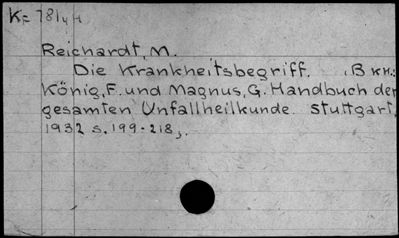 K= 781чн
Reichardt, M.
Die Krankheitsbegriff. (В кн.:
König, F. und Magnus, G. Handbuch der
gesamten Unfallheilkunde. Stuttgart,
1932 s. 199-218).